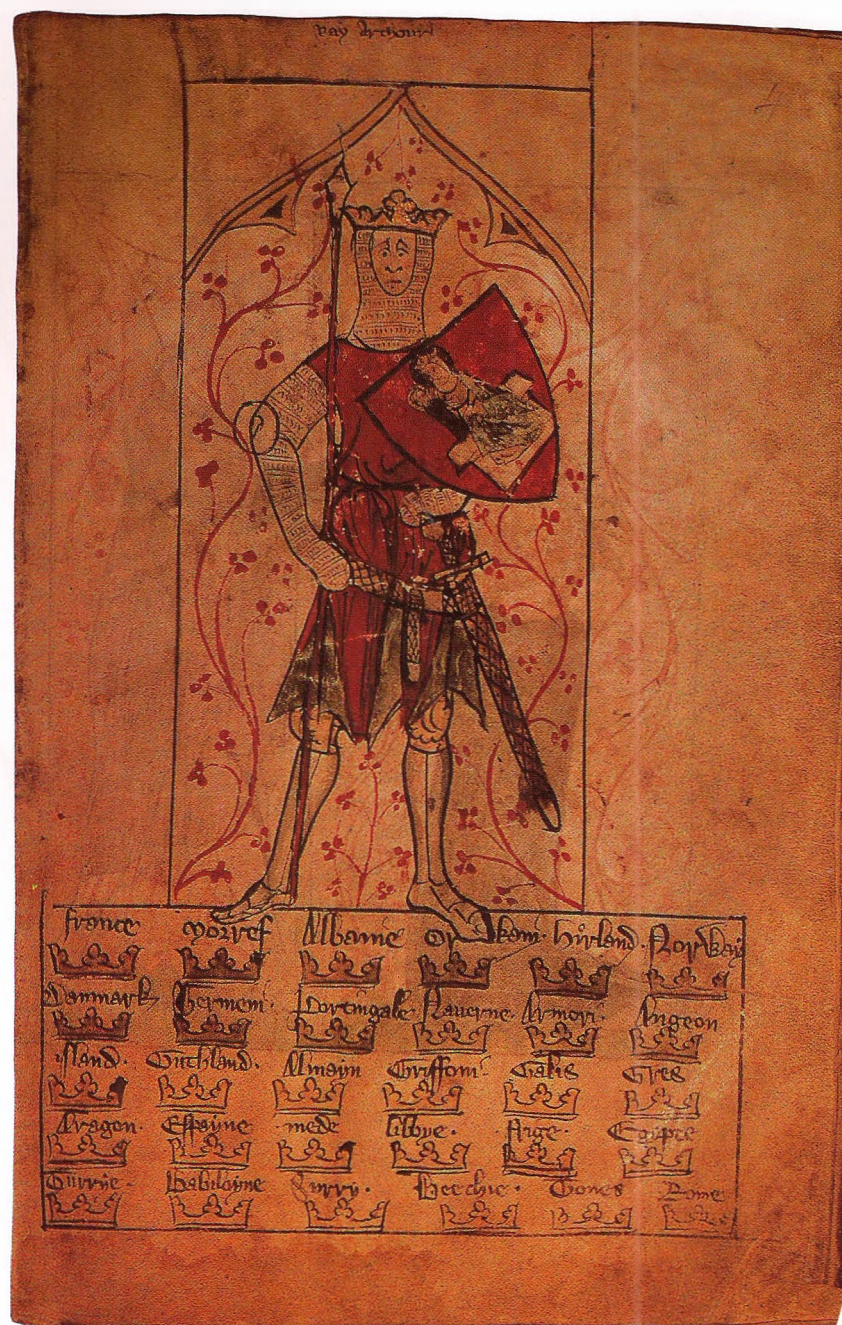 Ray Arthour
france Norref Albanie Orkani hirland Norway
Danmark Germeni Portingale Nauerne Armori Angeon
Island Guthland Almayn Griffoni Galis Gres
Aragon Espayne mede libbye Arge Egipte
Surrye Babiloyne Turry Beeche Gones Rome